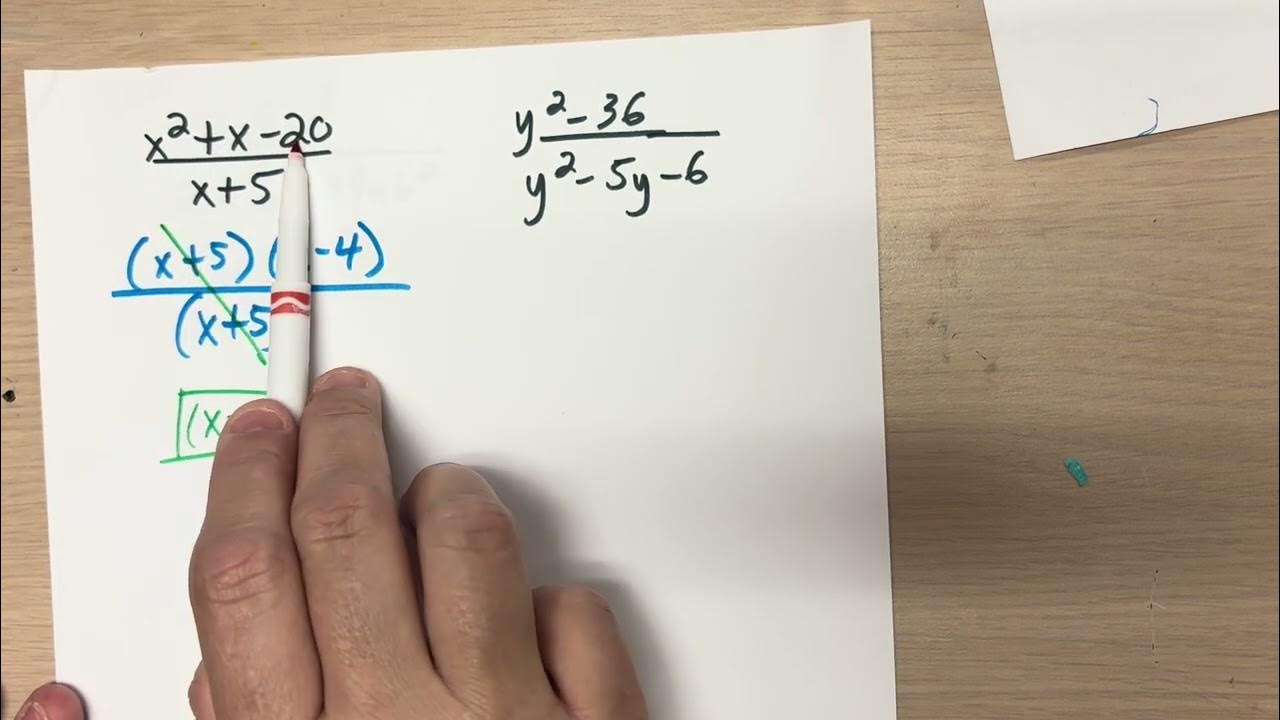 x²+x-20
x+5
(x+5)( -4)
(x+5
(x
y²-36
y²-5y-6